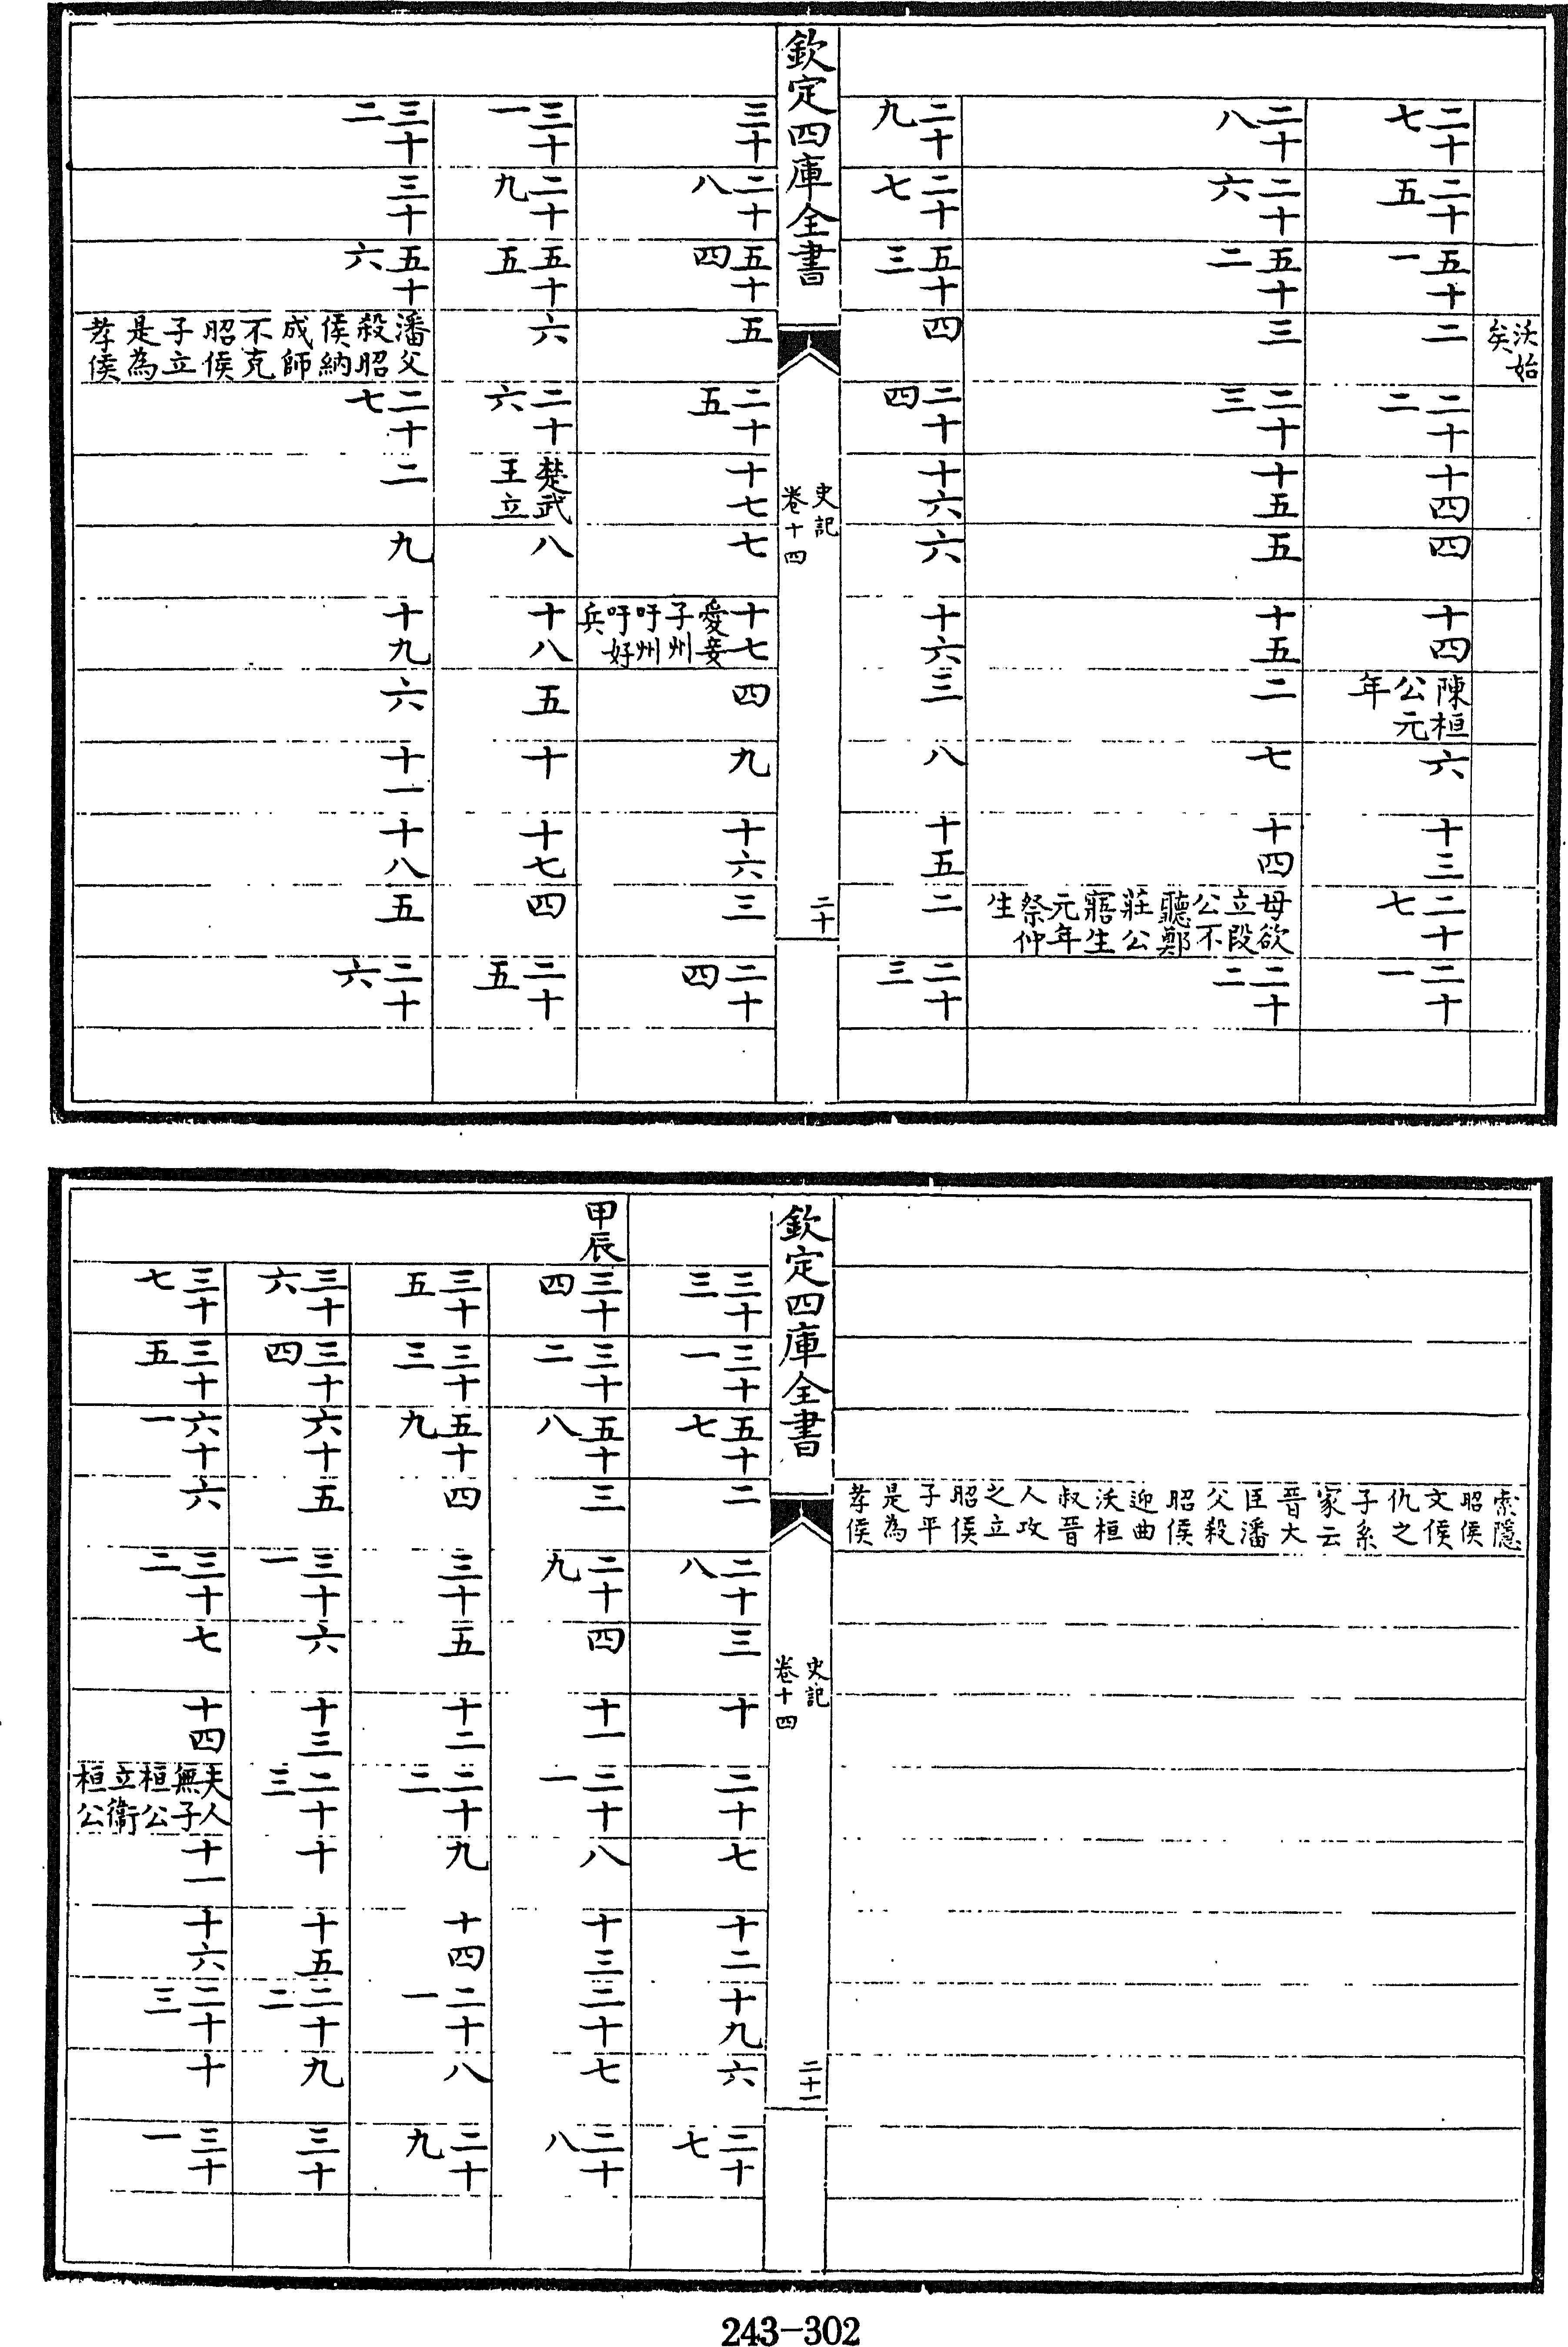 沃始矣
二十七 二十五 五十一 二 二十二 十四 四 十四 陳桓公元年 六 十三 二十七 二十一
二十八 二十六 五十二 三 二十三 十五 五 十五 二 七 十四 母欲立段公不聽鄭莊公寤生元年祭仲生 二十二
二十九 二十七 五十三 四 二十四 十六 六 十六 三 八 十五 二 二十三
欽定四庫全書
史記
卷十四
二十
三十 二十八 五十四 五 二十五 十七 七 十七愛妾子州吁州吁好兵 四 九 十六 三 二十四
三十一 二十九 五十五 六 二十六 楚武王立 八 十八 五 十 十七 四 二十五
三十二 三十 五十六 潘父殺昭侯納成師不克昭侯子立是為孝侯 二十七 二 九 十九 六 十一 十八 五 二十六
索隱昭侯文侯仇之子系家云晉大臣潘父殺昭侯迎曲沃桓叔晉人攻之立昭侯子平是為孝侯
欽定四庫全書
史記
卷十四
二十一
三十三 三十一 五十七 二 二十八 三 十 二十 七 十二 十九 六 二十七
甲辰 三十四 三十二 五十八 三 二十九 四 十一 二十一 八 十三 二十 七 二十八
三十五 三十三 五十九 四 三十 五 十二 二十二 九 十四 二十一 八 二十九
三十六 三十四 六十 五 三十一 六 十三 二十三 十 十五 二十二 九 三十
三十七 三十五 六十一 六 三十二 七 十四 夫人無子桓公立衛桓公 十一 十六 二十三 十 三十一
243-302